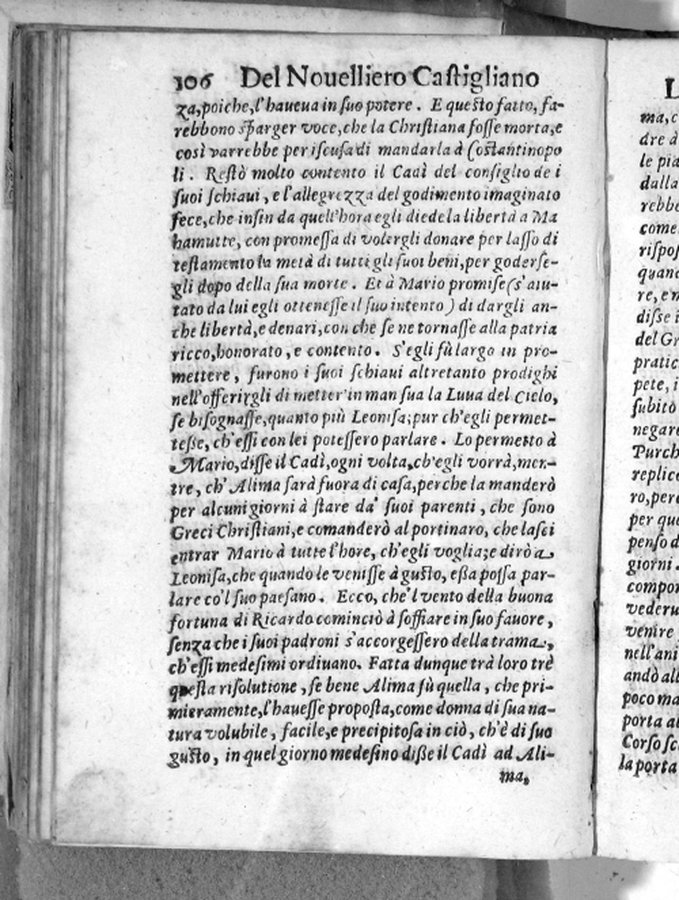 306 Del Nouelliero Castigliano
za, poiche, l'haueua in suo potere. E questo fatto, fa-
rebbono sparger voce, che la Christiana fosse morta, e
così varrebbe per iscusa di mandarla à Costantinopo
li. Restò molto contento il Cadì del consiglio de i
suoi schiaui, e l'allegrezza del godimento imaginato
fece, che insin da quell'hora egli diede la libertà a Ma
hamutte, con promessa di volergli donare per lasso di
testamento la metà di tutti gli suoi beni, per goderse-
gli dopo della sua morte. Et à Mario promise (s'aiu-
tato da lui egli ottenesse il suo intento) di dargli an-
che libertà, e denari, con che se ne tornasse alla patria
ricco, honorato, e contento. S'egli fù largo in pro-
mettere, furono i suoi schiaui altretanto prodighi
nell'offerirgli di metter in man sua la Luua del Cielo,
se bisognasse, quanto più Leonisa; pur ch'egli permet-
tesse, ch'essi con lei potessero parlare. Lo permetto à
Mario, disse il Cadì, ogni volta, ch'egli vorrà, men-
tre, ch'Alima sarà fuora di casa, perche la manderò
per alcuni giorni à stare da' suoi parenti, che sono
Greci Christiani, e comanderò al portinaro, che lasci
entrar Mario à tutte l'hore, ch'egli voglia; e dirò a
Leonisa, che quando le venisse à gusto, essa possa par-
lare co'l suo paesano. Ecco, che'l vento della buona
fortuna di Ricardo cominciò à soffiare in suo fauore,
senza che i suoi padroni s'accorgessero della trama,
ch'essi medesimi ordiuano. Fatta dunque trà loro trè
questa risolutione, se bene Alima fù quella, che pri-
mieramente, l'hauesse proposta, come donna di sua na-
tura volubile, facile, e precipitosa in ciò, ch'è di suo
gusto, in quel giorno medesino disse il Cadì ad Ali-
ma,
L
ma, c
dre à
le pia
dalla
rebbe
come
rispos
quand
re, e n
disse i
del Gr
pratic
pete, i
subitò
negare
Purch
replico
ro, per
per que
penso d
giorni.
compor
vederu
venire
nell'ani
andò all
poco ma
porta al
Corso sc
la porta